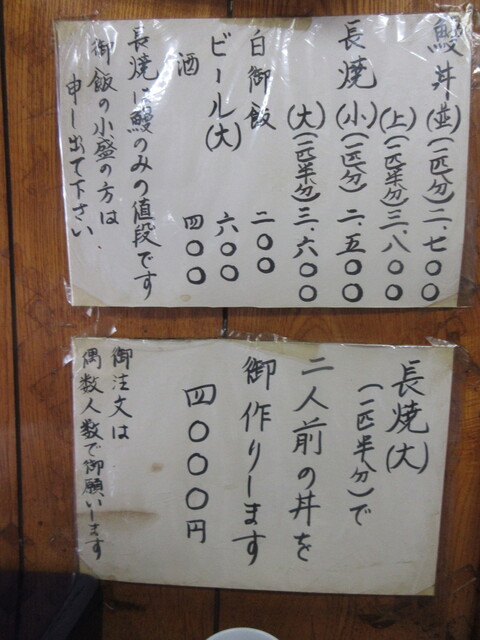 鰻丼(並)(一匹分)二、七〇〇
(上)(一匹半分)三、八〇〇
長焼(小)(一匹分)二、五〇〇
(大)(一匹半分)三、六〇〇
白御飯 二〇〇
ビール(大) 六〇〇
酒 四〇〇
長焼は鰻のみの値段です
御飯の小盛の方は
申し出て下さい
長焼(大)
(一匹半分)で
二人前の丼を
御作りします
四〇〇〇円
御注文は
偶数人数で御願いします